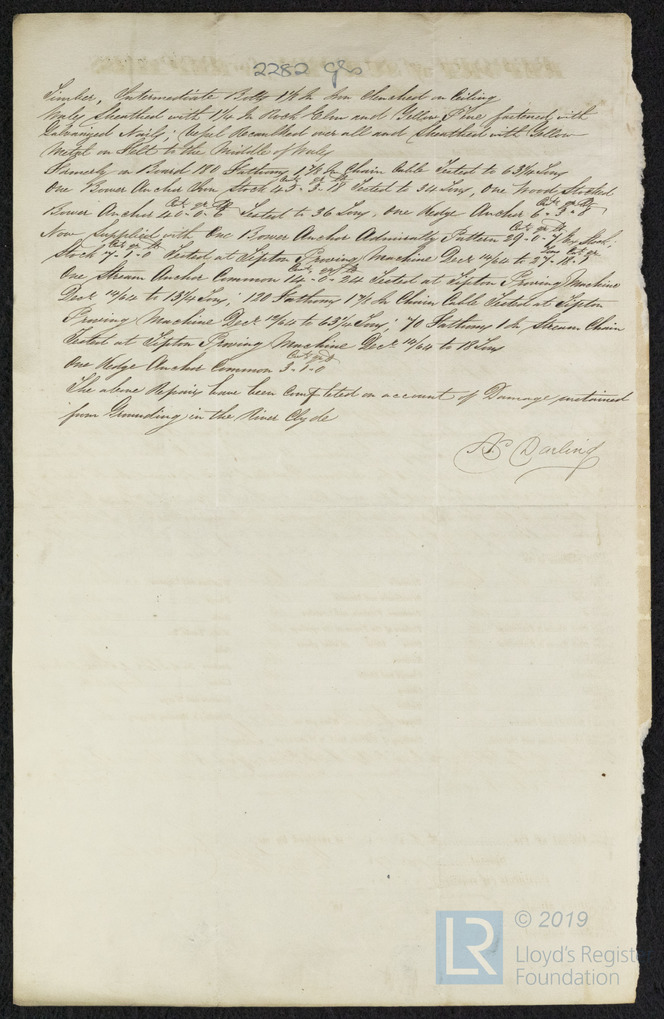 2282 Gls
Timber, Intermediate Bolts 1 1/8 In Iron Clenched on Ceiling
Wales Sheathed with 1 1/4 In Rock Elm and Yellow Pine fastened with
Galvanized Nails; Vessel Recaulked over all and Sheathed with Yellow
Metal on Felt to the Middle of Wales
Formerly on Board 180 Fathoms 1 7/8 In Chain Cable Tested to 63 1/4 Tons
One Bower Anchor Iron Stock 43-3-18 Tested to 34 Tons, One Wood Stocked
Bower Anchor 40-0-6 Tested to 36 Tons, One Kedge Anchor 6-3-8
Now Supplied with One Bower Anchor Admiralty Pattern 29-0-7 Stock
Stock 7-1-0 Tested at Tipton Proving Machine Decr 14/64 to 27-17
One Stream Anchor Common 14-0-24 Tested at Tipton Proving Machine
Decr 14/64 to 15 1/4 Tons; 120 Fathoms 1 7/8 In Chain Cable Tested at Tipton
Proving Machine Decr 12/64 to 63 1/4 Tons; 70 Fathoms 1 In Stream Chain
Tested at Tipton Proving Machine Decr 14/64 to 18 Tons
One Kedge Anchor Common 3-1-0
The above Repairs have been Completed on account of Damage sustained
from Grounding in the River Clyde
Darling
LR © 2019
Lloyd's Register
Foundation